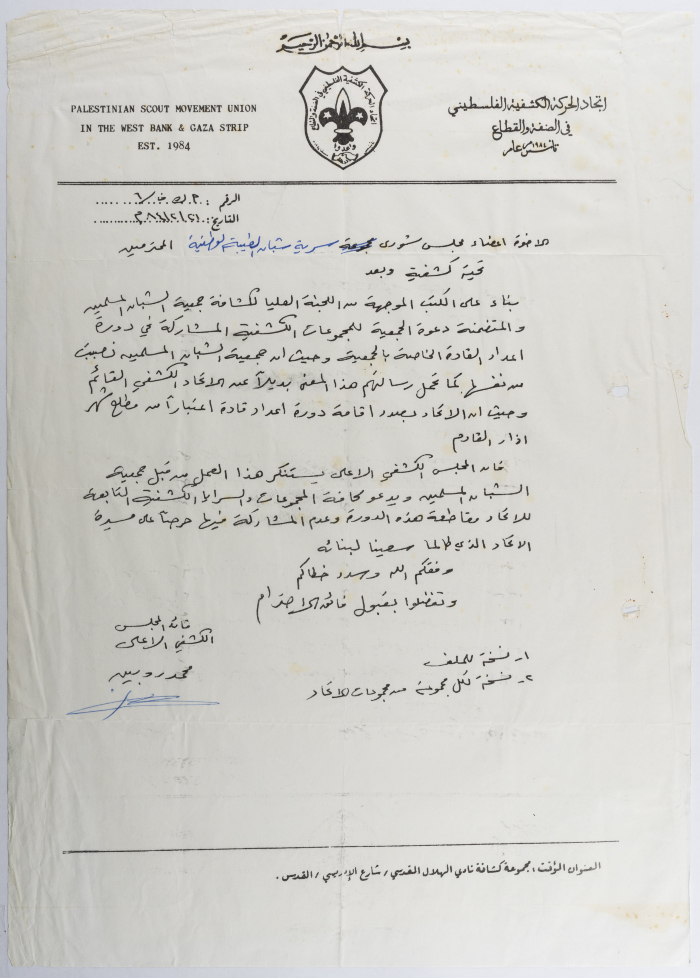 بسم الله الرحمن الرحيم
PALESTINIAN SCOUT MOVEMENT UNION
IN THE WEST BANK & GAZA STRIP
EST. 1984
اتحاد الحركة الكشفية الفلسطيني
في الضفة والقطاع
تأسس عام ١٩٨٤
الرقم :
التاريخ :
الاخوة اعضاء مجلس شورى سرية شبان الطيبة الوطنية المحترمين
تحية كشفية وبعد
بناء على الكتب الموجهة من اللجنة العليا لكشافة جمعية الشبان المسلمين
والمتضمنة دعوة الجمعية للمجموعات الكشفية المشاركة في دورة
اعداد القادة الخاصة بالجمعية وحيث ان جمعية الشبان المسلمين نصبت
من نفسها كما تحمل رسالتهم هذا المعنى بديلاً عن الاتحاد الكشفي القائم
وحيث ان الاتحاد بصدد اقامة دورة اعداد قادة اعتباراً من مطلع شهر
اذار القادم
فان المجلس الكشفي الاعلى يستنكر هذا العمل من قبل جمعية
الشبان المسلمين ويدعو كافة المجموعات والسرايا الكشفية التابعة
للاتحاد مقاطعة هذه الدورة وعدم المشاركة فيها حرصاً على مسيرة
الاتحاد الذي طالما سعينا لبنائه
وفقكم الله وسدد خطاكم
وتفضلوا بقبول فائق الاحترام
المجلس
الكشفي الاعلى
محمد روبين
١- نسخة للملف
٢- نسخة لكل مجموعة من مجموعات الاتحاد
العنوان المؤقت : مجموعة كشافة نادي الهلال المقدسي / شارع الإدريسي / القدس .